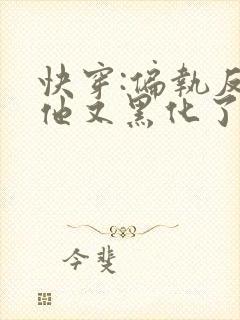 快穿:偏執反
他又黑化了
今斐